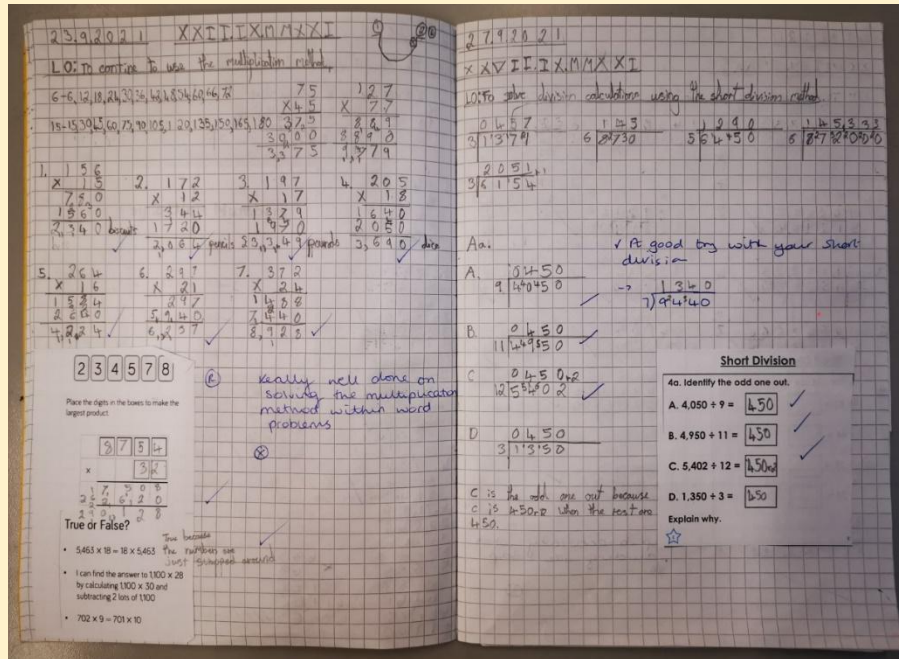 23.9.2021 XXIII.IX.MMXXI
LO: To contine to use the multiplication method.
6-6,12,18,24,30,36,42,48,54,60,66,72
15-15,30,45,60,75,90,105,120,135,150,165,180
75
×45
375
3000
3375
127
× 77
889
8890
9,779
1. 156
× 15
780
1560
2,340
2. 172
× 12
344
1720
2,064 pencils
3. 197
× 17
1379
1970
3,349 pounds
4. 205
× 18
1640
2050
3,690
5. 264
× 16
1584
2640
4,224
6. 297
× 21
297
5940
6,237
7. 372
× 24
1488
7440
8,928
2 3 4 5 7 8
Place the digits in the boxes to make the
largest product.
8 7 5 4
× 3 2
17508
True or False?
• 5,463 × 18 = 18 × 5,463
True because
the numbers are
just swapped around
• I can find the answer to 1,100 × 28
by calculating 1,100 × 30 and
subtracting 2 lots of 1,100
• 702 × 9 = 701 × 10
Really well done on
solving the multiplication
method within word
problems
27.9.2021
XXVII.IX.MMXXI
LO: To solve division calculations using the short division method.
0457
3
1290
5
2051
3
Aa.
A. 0450
9
B. 0450
11
C 0450r2
12
D 0450
3
✓ A good try with your short
division
→ 1340
7
C is the odd one out because
C is 450r2 when the rest are
450.
Short Division
4a. Identify the odd one out.
A. 4,050 ÷ 9 = 450
B. 4,950 ÷ 11 = 450
C. 5,402 ÷ 12 = 450r2
D. 1,350 ÷ 3 = 450
Explain why.